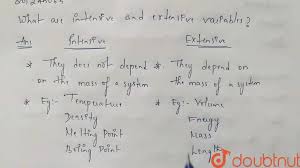 What are intensive and extensive variables?
Ans Intensive Extensive
* They does not depend * They depend on
on the mass of a system the mass of a system
* Eg:- Temperature * Eg:- Volume
Density Energy
Melting Point Mass
Boiling Point Length
doubtnut